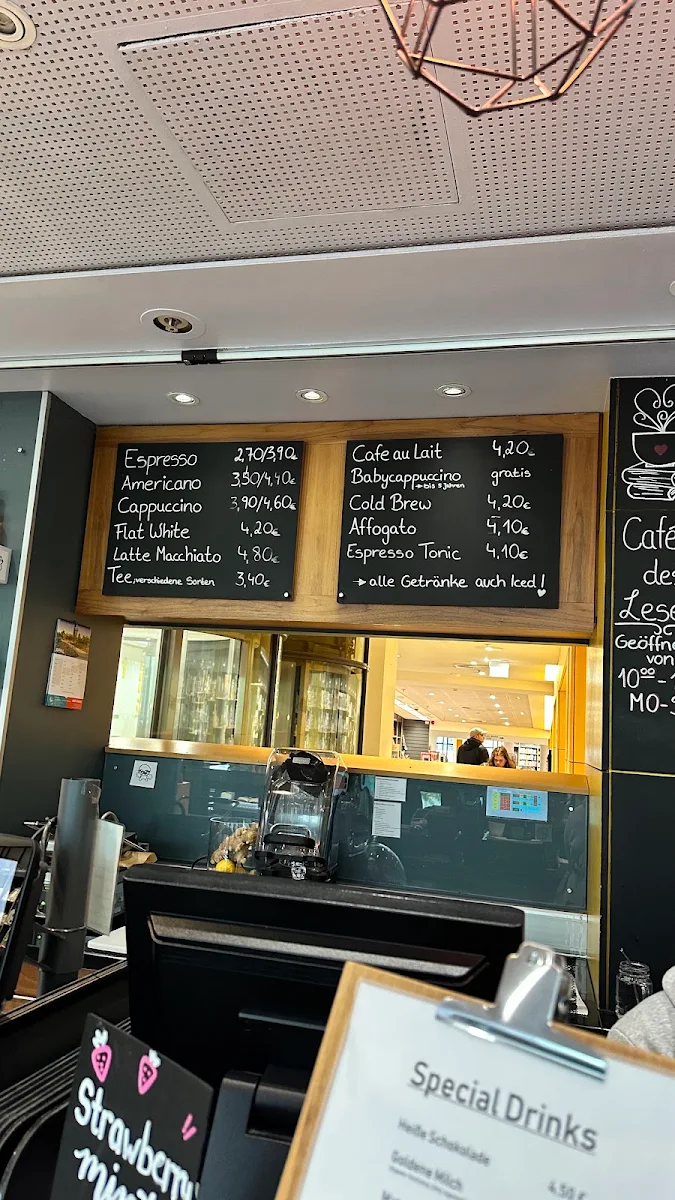 Espresso 2,70/3,90€
Americano 3,50/4,40€
Cappuccino 3,90/4,60€
Flat White 4,20€
Latte Macchiato 4,80€
Tee, verschiedene Sorten 3,40€
Cafe au Lait 4,20€
Babycappuccino gratis
→ bis 5 Jahren
Cold Brew 4,20€
Affogato 4,10€
Espresso Tonic 4,10€
→ alle Getränke auch Iced!
Café
des
Lese
Geöffne
von
10⁰⁰-1
MO-S
Special Drinks
Heiße Schokolade
Goldene Milch
4,50 €
Strawberry